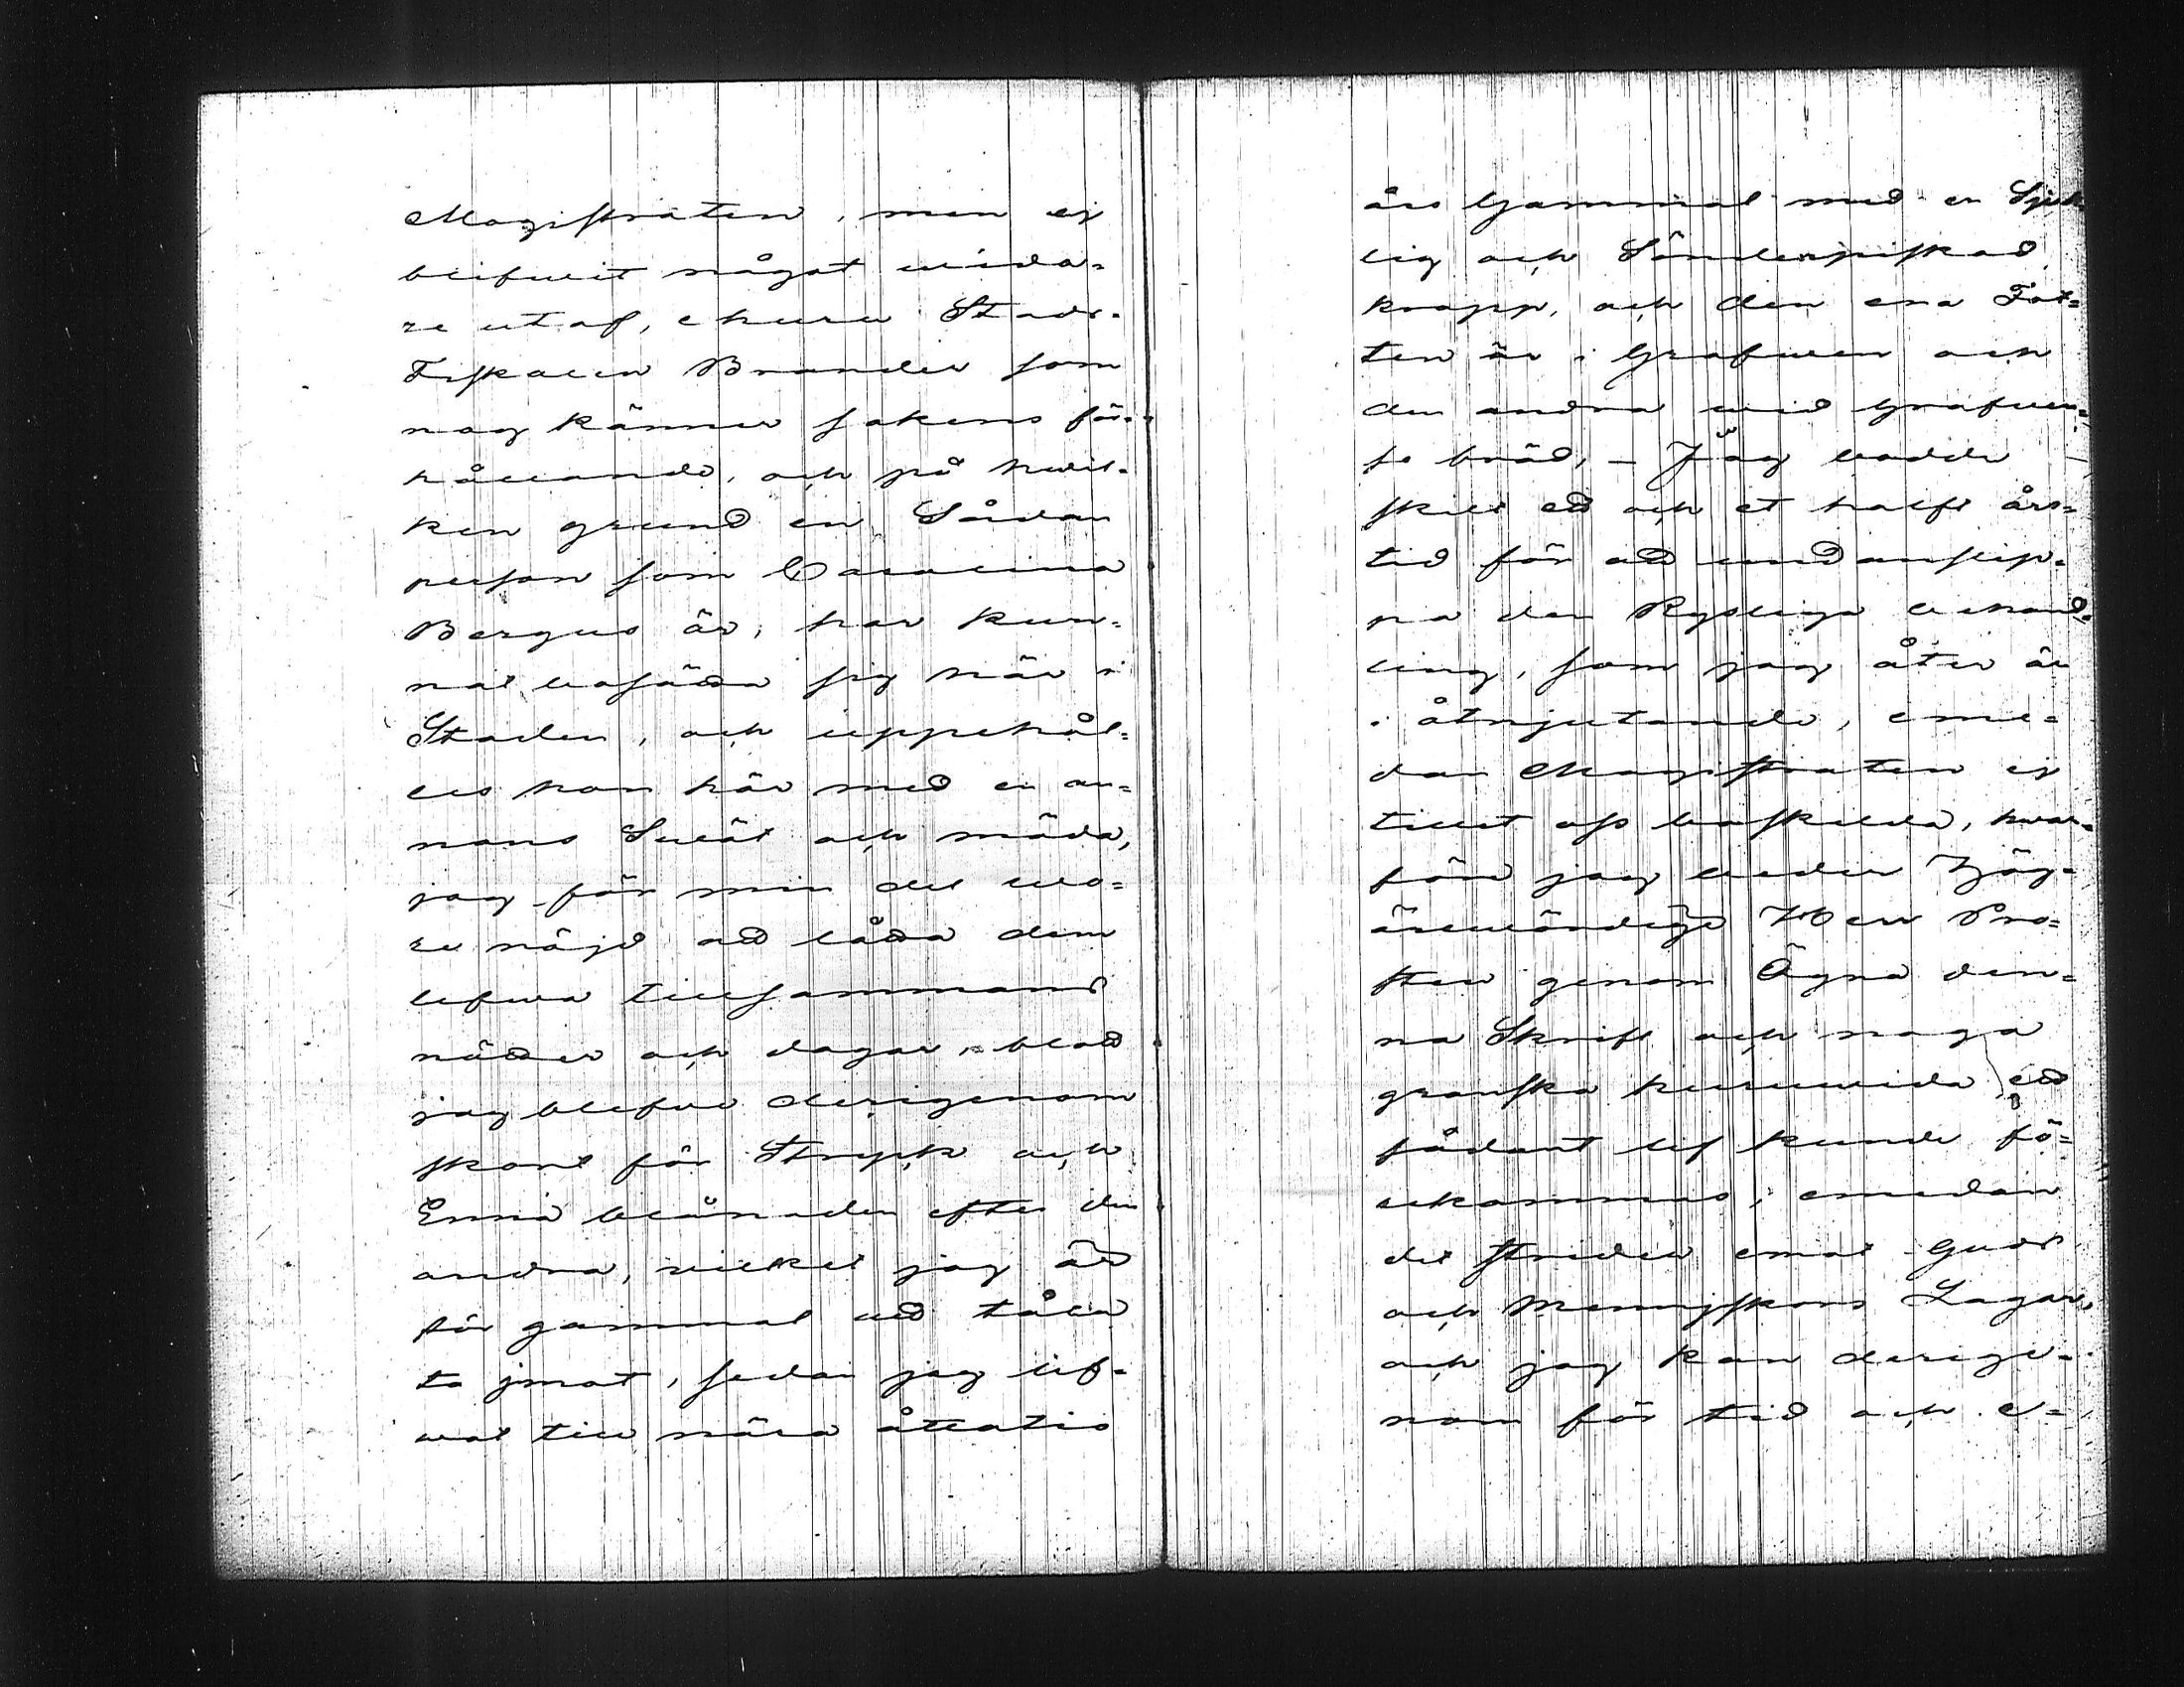 Magistraten, men ej
blifwit något wida=
re utaf, ehuru Stads=
Fiskalen Brander som
nog känner sakens för=
hållande, och på hwil=
ken grund en Sådan
person som Carolina
Bergus är, har kun=
nat bosäda sig här i
Staden, och uppehål=
les hon här med en an=
nans Swät och möda,
jag för min del wo=
re nöjd ad låda dem
lefwa tillsammans
näder och dagar, blod
jag blefwe derigenom
skont för Stryk och
Enna blånaden efter den
andra, vilket jag är
för gammal ad tåla
ta jmot, sedan jag lif=
wat till nära åtatio
års Gammal med en Sjuk=
lig och Sönderpiskad
kropp, och den ena Fot=
ten är i Grafwen och
den andra wid Grafwen=
se bräd, - Jag bodde
skilt ed och et halft års=
tid för ad undanslip=
pa den Rysliga behand=
ling, som jag åter är
i åtnjutande, eme=
dan Magistraten ej
tillet oss boskilda, hwar=
före jag beder Höge=
ärewördige Herr Pro=
sten genom Ögna den=
na Skrift och noga
granska huruwida ed
sådant lif kunde fö=
rekommas, emedan
det strider emot Guds
och Mennjskors Lagar,
och jag kan derige=
nom för tid och e=